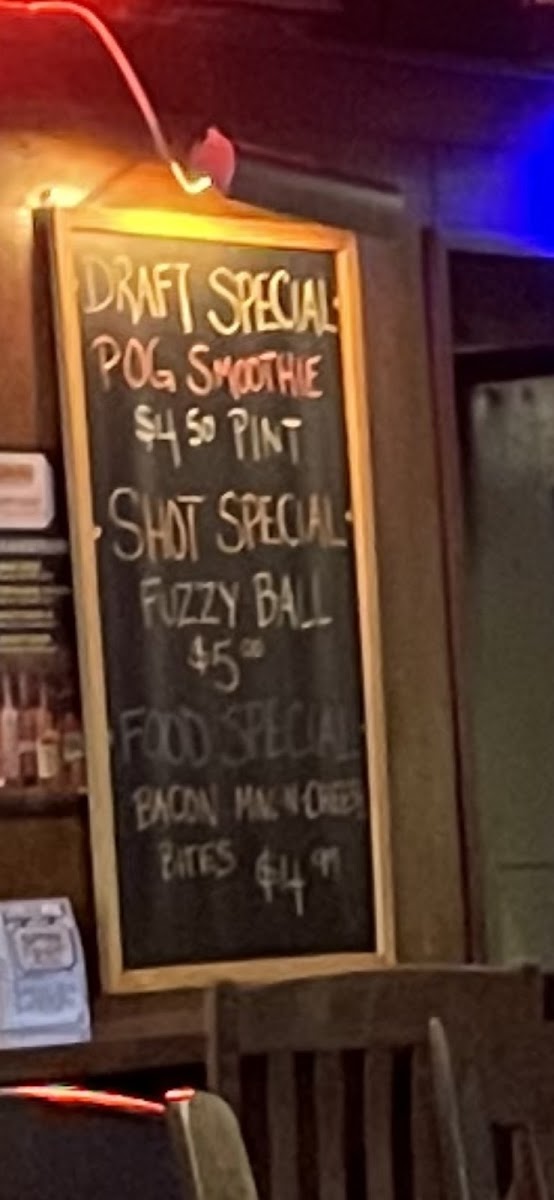 DRAFT SPECIAL
POG SMOOTHIE
$4 50 PINT
SHOT SPECIAL
FUZZY BALL
$5 00
FOOD SPECIAL
BACON MAC-N-CHEESE
BITES $4 99